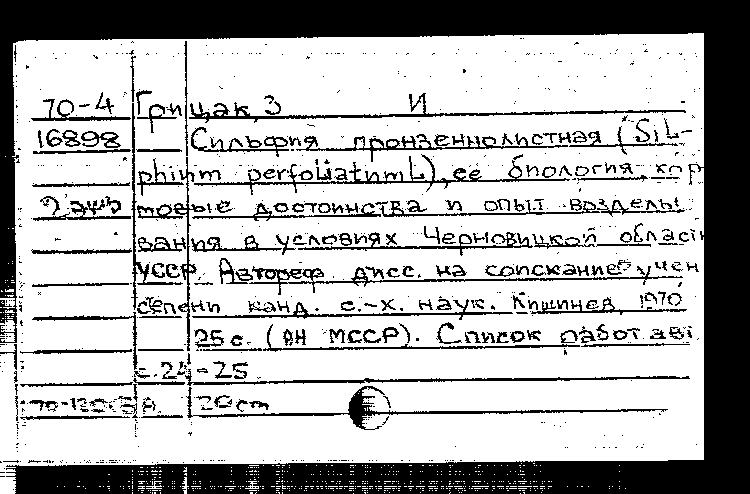 70-4 Грицак, З И
16898 Сильфия пронзеннолистная (Sil-
phium perfoliatum L), ее биология, кор
2 экз мовые достоинства и опыт возделы
вания в условиях Черновицкой област
УССР. Автореф дисс. на соискание учен
степени канд. с.-х. наук. Кишинев, 1970
25 с. (АН МССР). Список работ авт
с. 24-25
20 cm